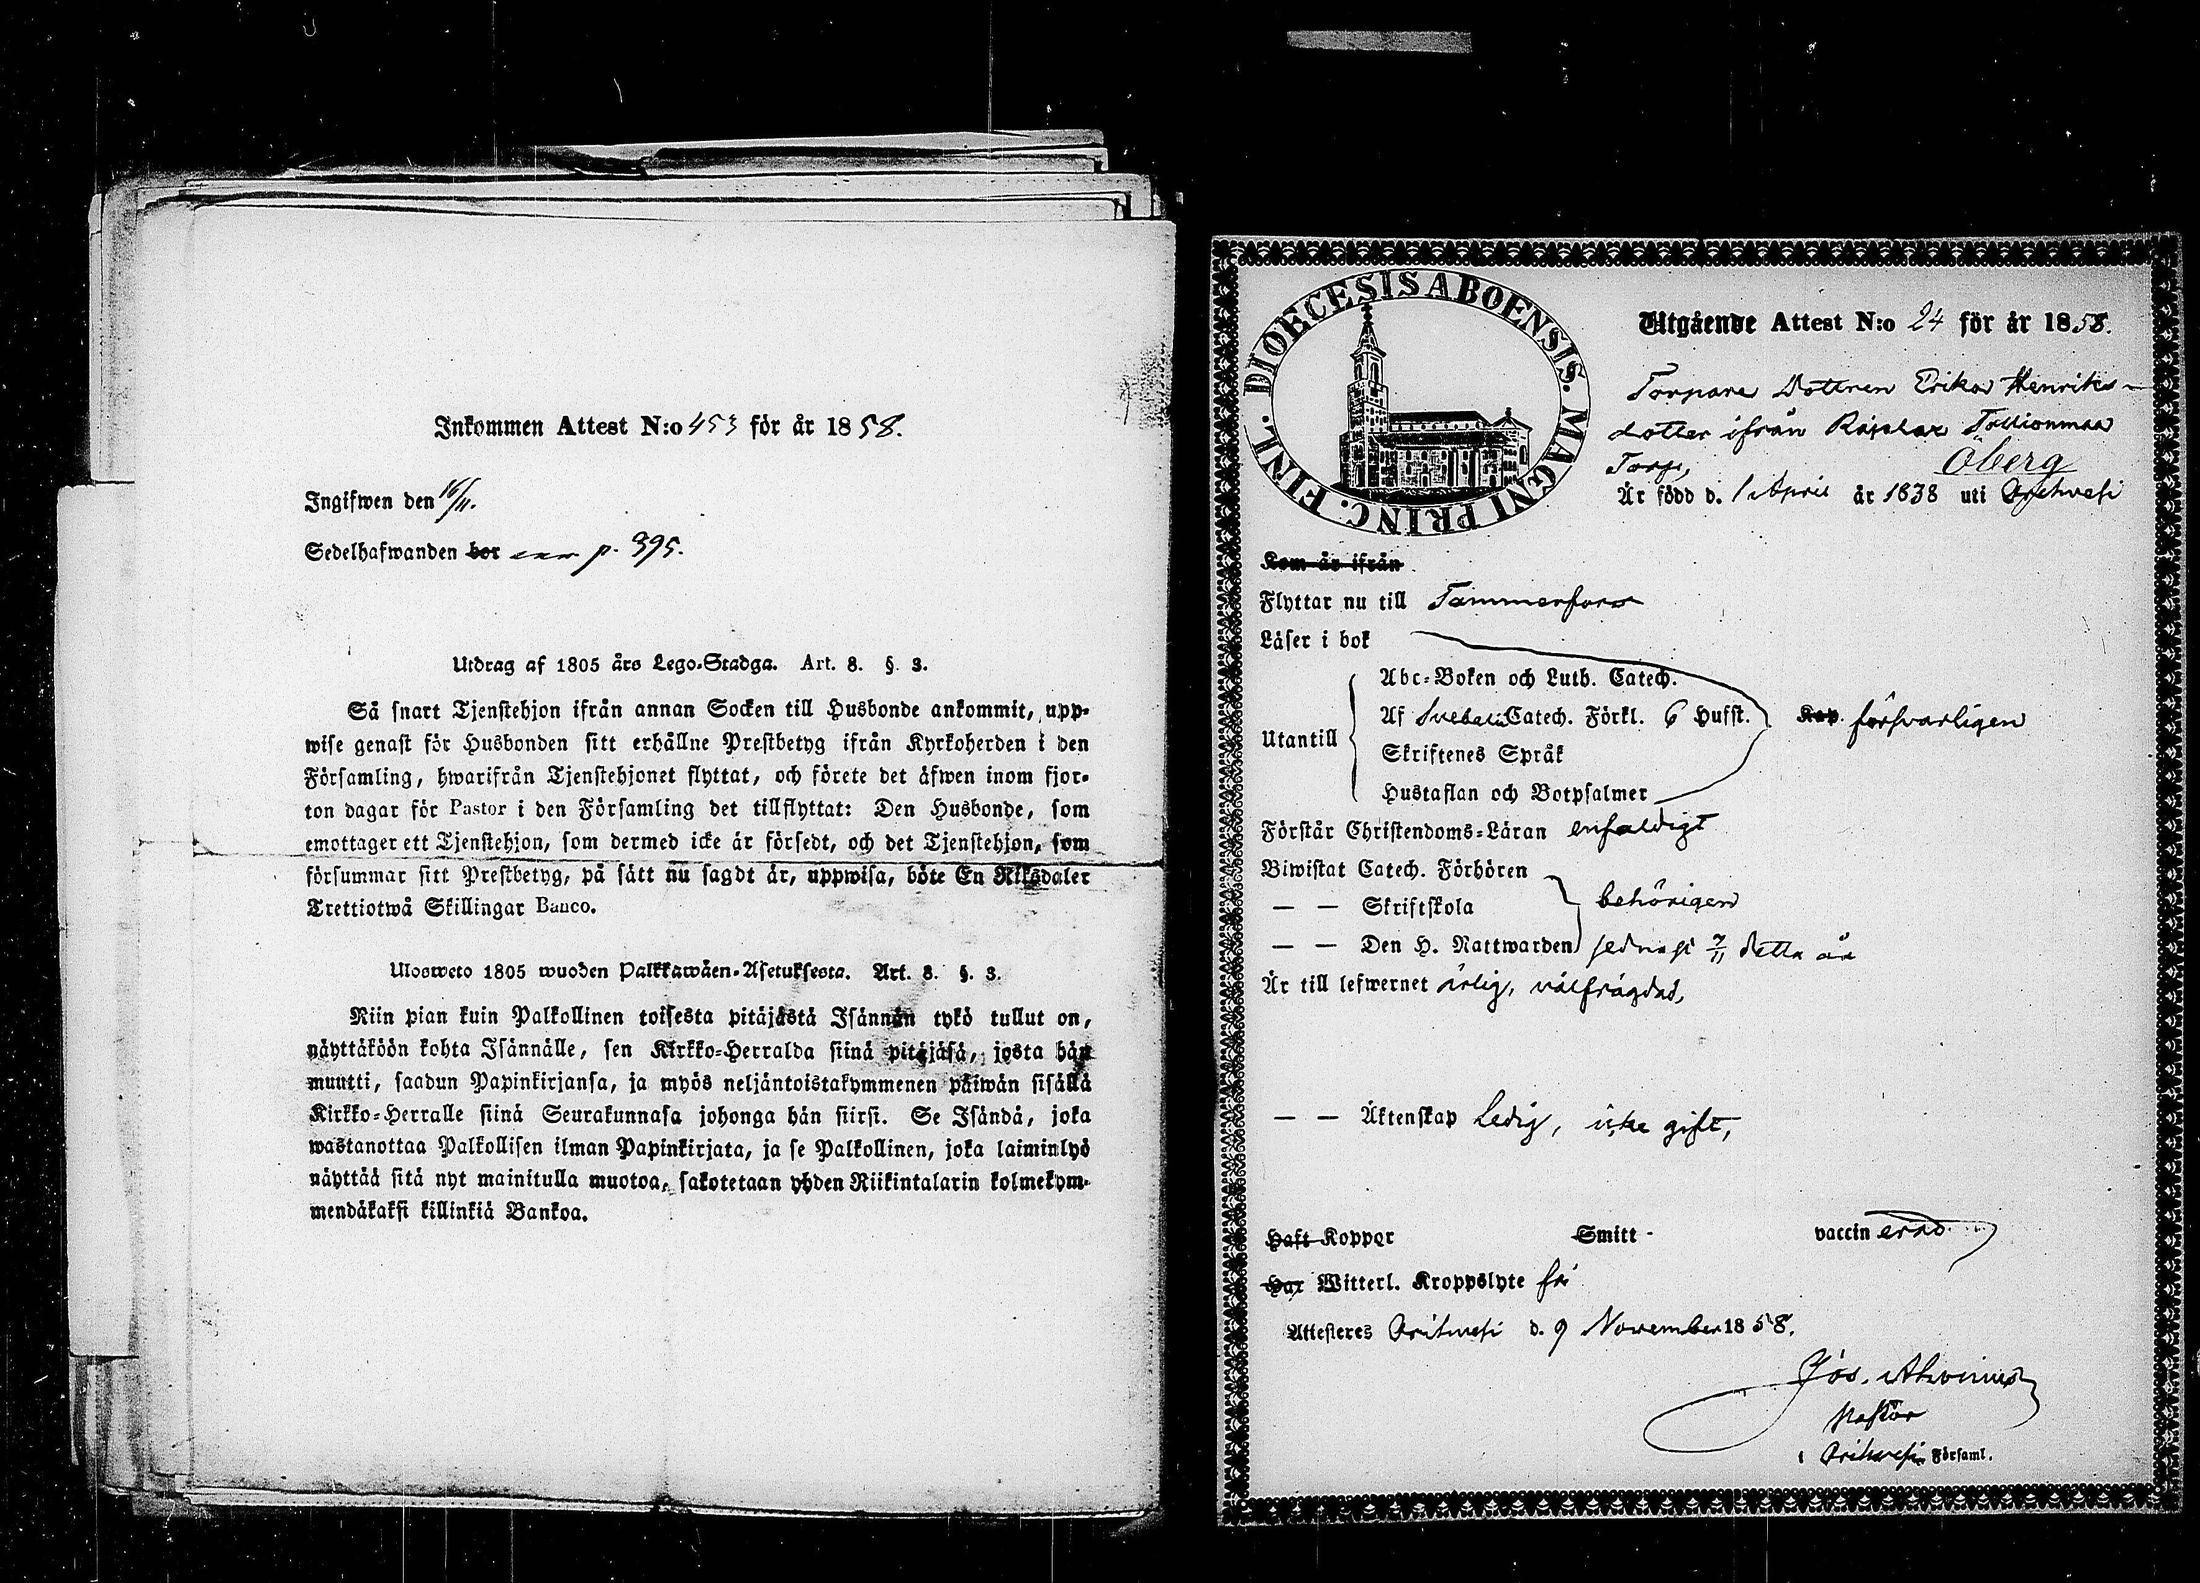 Inkommen Attest N:o 453 för år 1858.
Ingifwen den 16/11.
Sedelhafwanden bor p. 395.
Utdrag af 1805 års Lego-Stadga. Art. 8. §. 3.
Så snart Tjenstehjon ifrån annan Socken till Husbonde ankommit, upp-
wise genast för Husbonden sitt erhållne Prestbetyg ifrån Kyrkoherden i den
Församling, hwarifrån Tjenstehjonet flyttat, och förete det äfwen inom fjor-
ton dagar för Pastor i den Församling det tillflyttat: Den Husbonde, som
emottager ett Tjenstehjon, som dermed icke är försedt, och det Tjenstehjon, som
försummar sitt Prestbetyg, på sätt nu sagdt är, uppwisa, böte En Riksdaler
Trettiotwå Skillingar Banco.
Ulosweto 1805 wuoden Palkkawäen-Asetuksesta. Art. 8. §. 3.
Niin pian kuin Palkollinen toisesta pitäjästä Isännän tykö tullut on,
näyttäköön kohta Isännälle, sen Kirkko-Herralda siinä pitäjäsä, josta hän
muutti, saadun Papinkirjansa, ja myös neljäntoistakymmenen päiwän sisällä
Kirkko-Herralle siinä Seurakunnasa johonga hän siirsi. Se Isändä, joka
wastanottaa Palkollisen ilman Papinkirjata, ja se Palkollinen, joka laiminlyö
näyttää sitä nyt mainitulla muotoa, sakotetaan yhden Riikintalarin kolmekym-
mendäkaksi killinkiä Bankoa.
DIOECESIS ABOENSIS. MAGNI PRINC. FINL.
Utgående Attest N:o 24 för år 1858.
Torpare Dottren Erika Henriks-
dotter ifrån Torp,
Öberg
Är född d. 1 April år 1838 uti Orihvesi
Kom år ifrån
Flyttar nu till Tammerfors
Läser i bok
Utantill
Abc-Boken och Luth. Catech.
Af Svebelii Catech. Förkl. 6 Hufst. Kap. försvarligen
Skriftenes Språk
Hustaflan och Botpsalmer
Förstår Christendoms-Läran enfaldigt
Biwistat Catech. Förhören
— — Skriftskola behörigen
— — Den H. Nattwarden sednast 7/11 detta år
Är till lefwernet ärlig, välfrägdad,
— — Äktenskap Ledig, icke gift,
Haft Koppor Smitt- vaccinerad
Har Witterl. Kroppslyte fri
Attesteres Orihvesi d. 9 November 1858.
Jos. Ahonius
Pastor
i Orihvesi Församl.